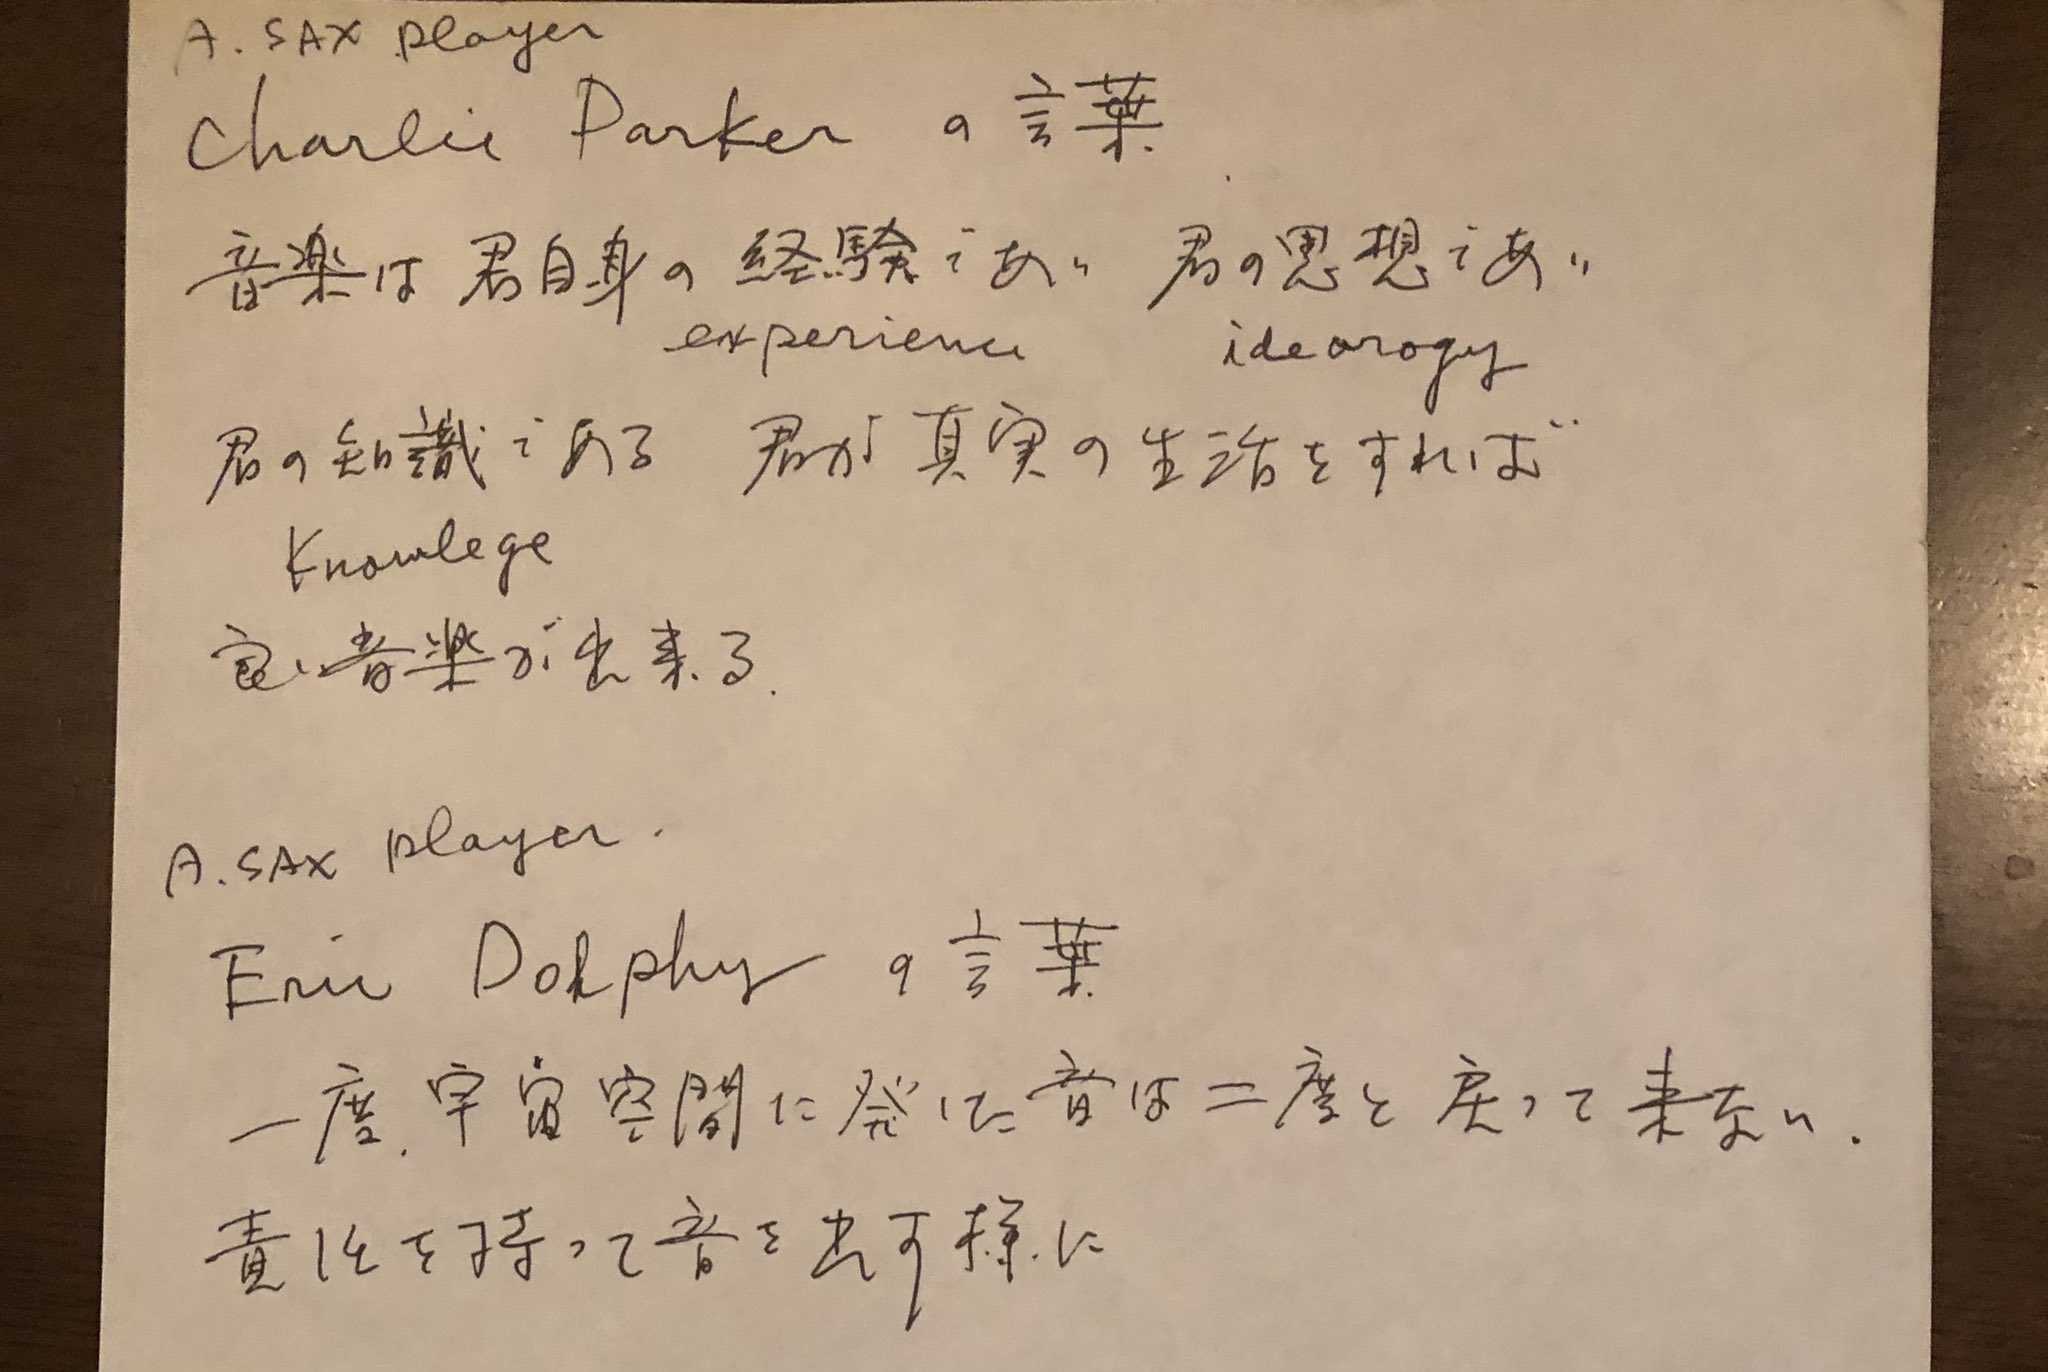 A. SAX player
Charlie Parker の言葉
音楽は君自身の経験であり 君の思想であり
experience idearogy
君の知識である 君が真実の生活をすれば
Knowlege
良い音楽が出来る.
A. SAX player.
Eric Dolphy の言葉
一度、宇宙空間に発した音は二度と戻って来ない.
責任を持って音を出す様に